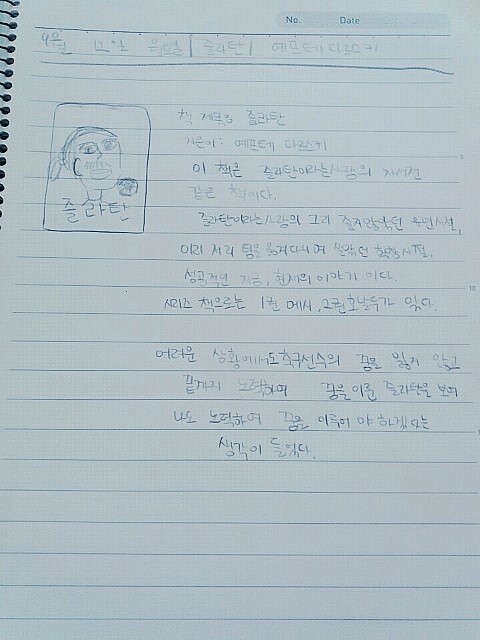 No. Date
4월 12일 일요일 | 즐라탄 | 예프테 다르스키
책 제목: 즐라탄
지은이: 예프테 다르스키
즐라탄
이 책은 즐라탄이라는 사람의 자서전
같은 책이다.
즐라탄이라는 사람의 그리 좋지 않았던 유년시절,
이리 저리 팀을 옮겨다니며 쌓았던 확장시절,
성공적인 지금, 현재의 이야기 이다.
시리즈 책으로는 1권 메시, 2권 호날두가 있다.
어려운 상황에서도 축구선수의 꿈을 잃지 않고
끝까지 노력하여 꿈을 이룬 즐라탄을 보며
나도 노력하여 꿈을 이루어 야 하겠다는
생각이 들었다.